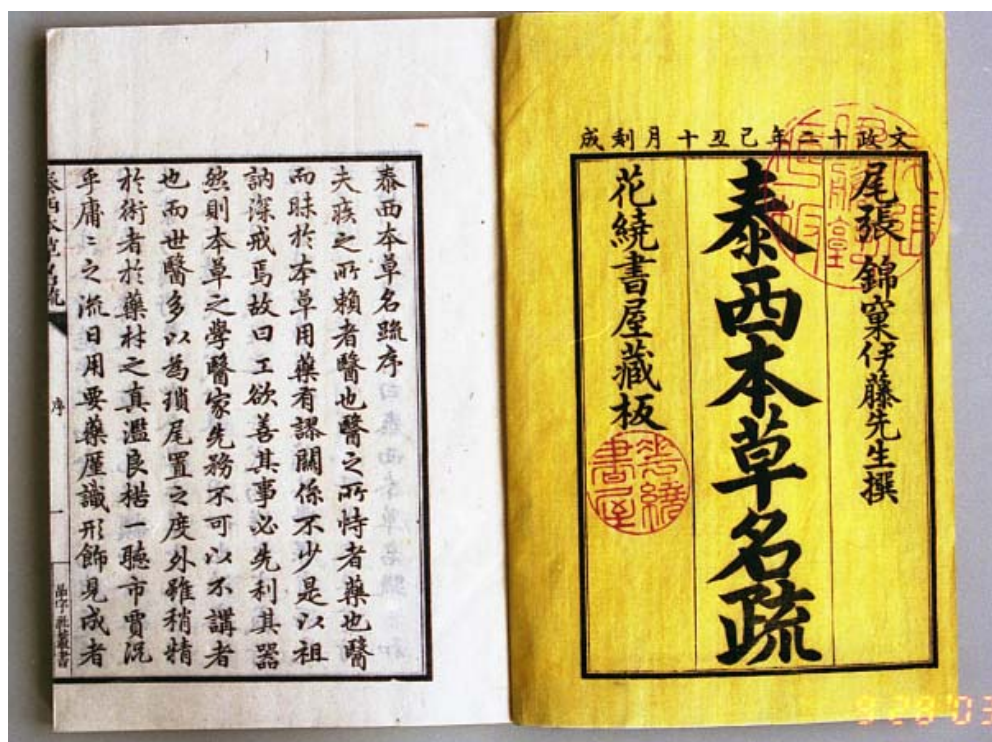 文政十二年己丑十月刻成
尾張 錦窠伊藤先生撰
泰西本草名疏
花繞書屋藏板
花繞書屋
泰西本草名疏序
夫疾之所賴者醫也醫之所恃者藥也醫
而昧於本草用藥有謬關係不少是以祖
訥深戒焉故曰工欲善其事必先利其器
然則本草之學醫家先務不可以不講者
也而世醫多以為瑣尾置之度外雖稍精
於術者於藥材之真濫良楛一聽市賈況
乎庸〻之流日用要藥厪識形飾見成者
泰西本草名疏
序
一
叢書
9 28 '03